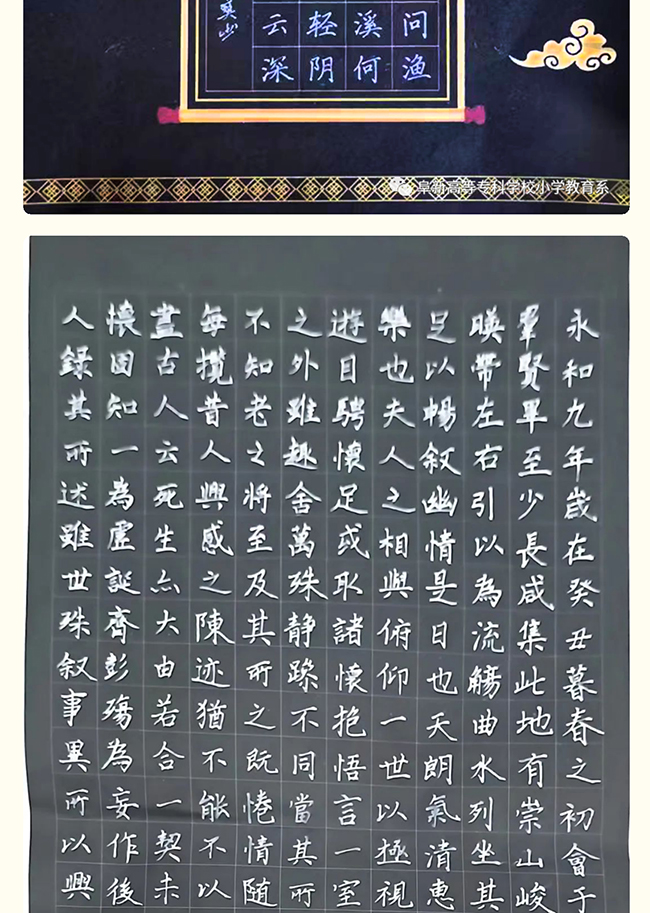 问渔
溪何
轻阴
云深
阜新高等专科学校小学教育系
永和九年歲在癸丑暮春之初會于
羣賢畢至少長咸集此地有崇山峻
暎帶左右引以為流觴曲水列坐其
足以暢叙幽情是日也天朗氣清惠
樂也夫人之相與俯仰一世以極視
遊目騁懷足或取諸懷抱悟言一室
之外雖趣舍萬殊静躁不同當其所
不知老之將至及其所之既惓情随
每攬昔人興感之陳迹猶不能不以
古人云死生亦大由若合一契未
懷固知一為虛誕齊彭殤為妄作後
人録其所述雖世殊叙事異所以興